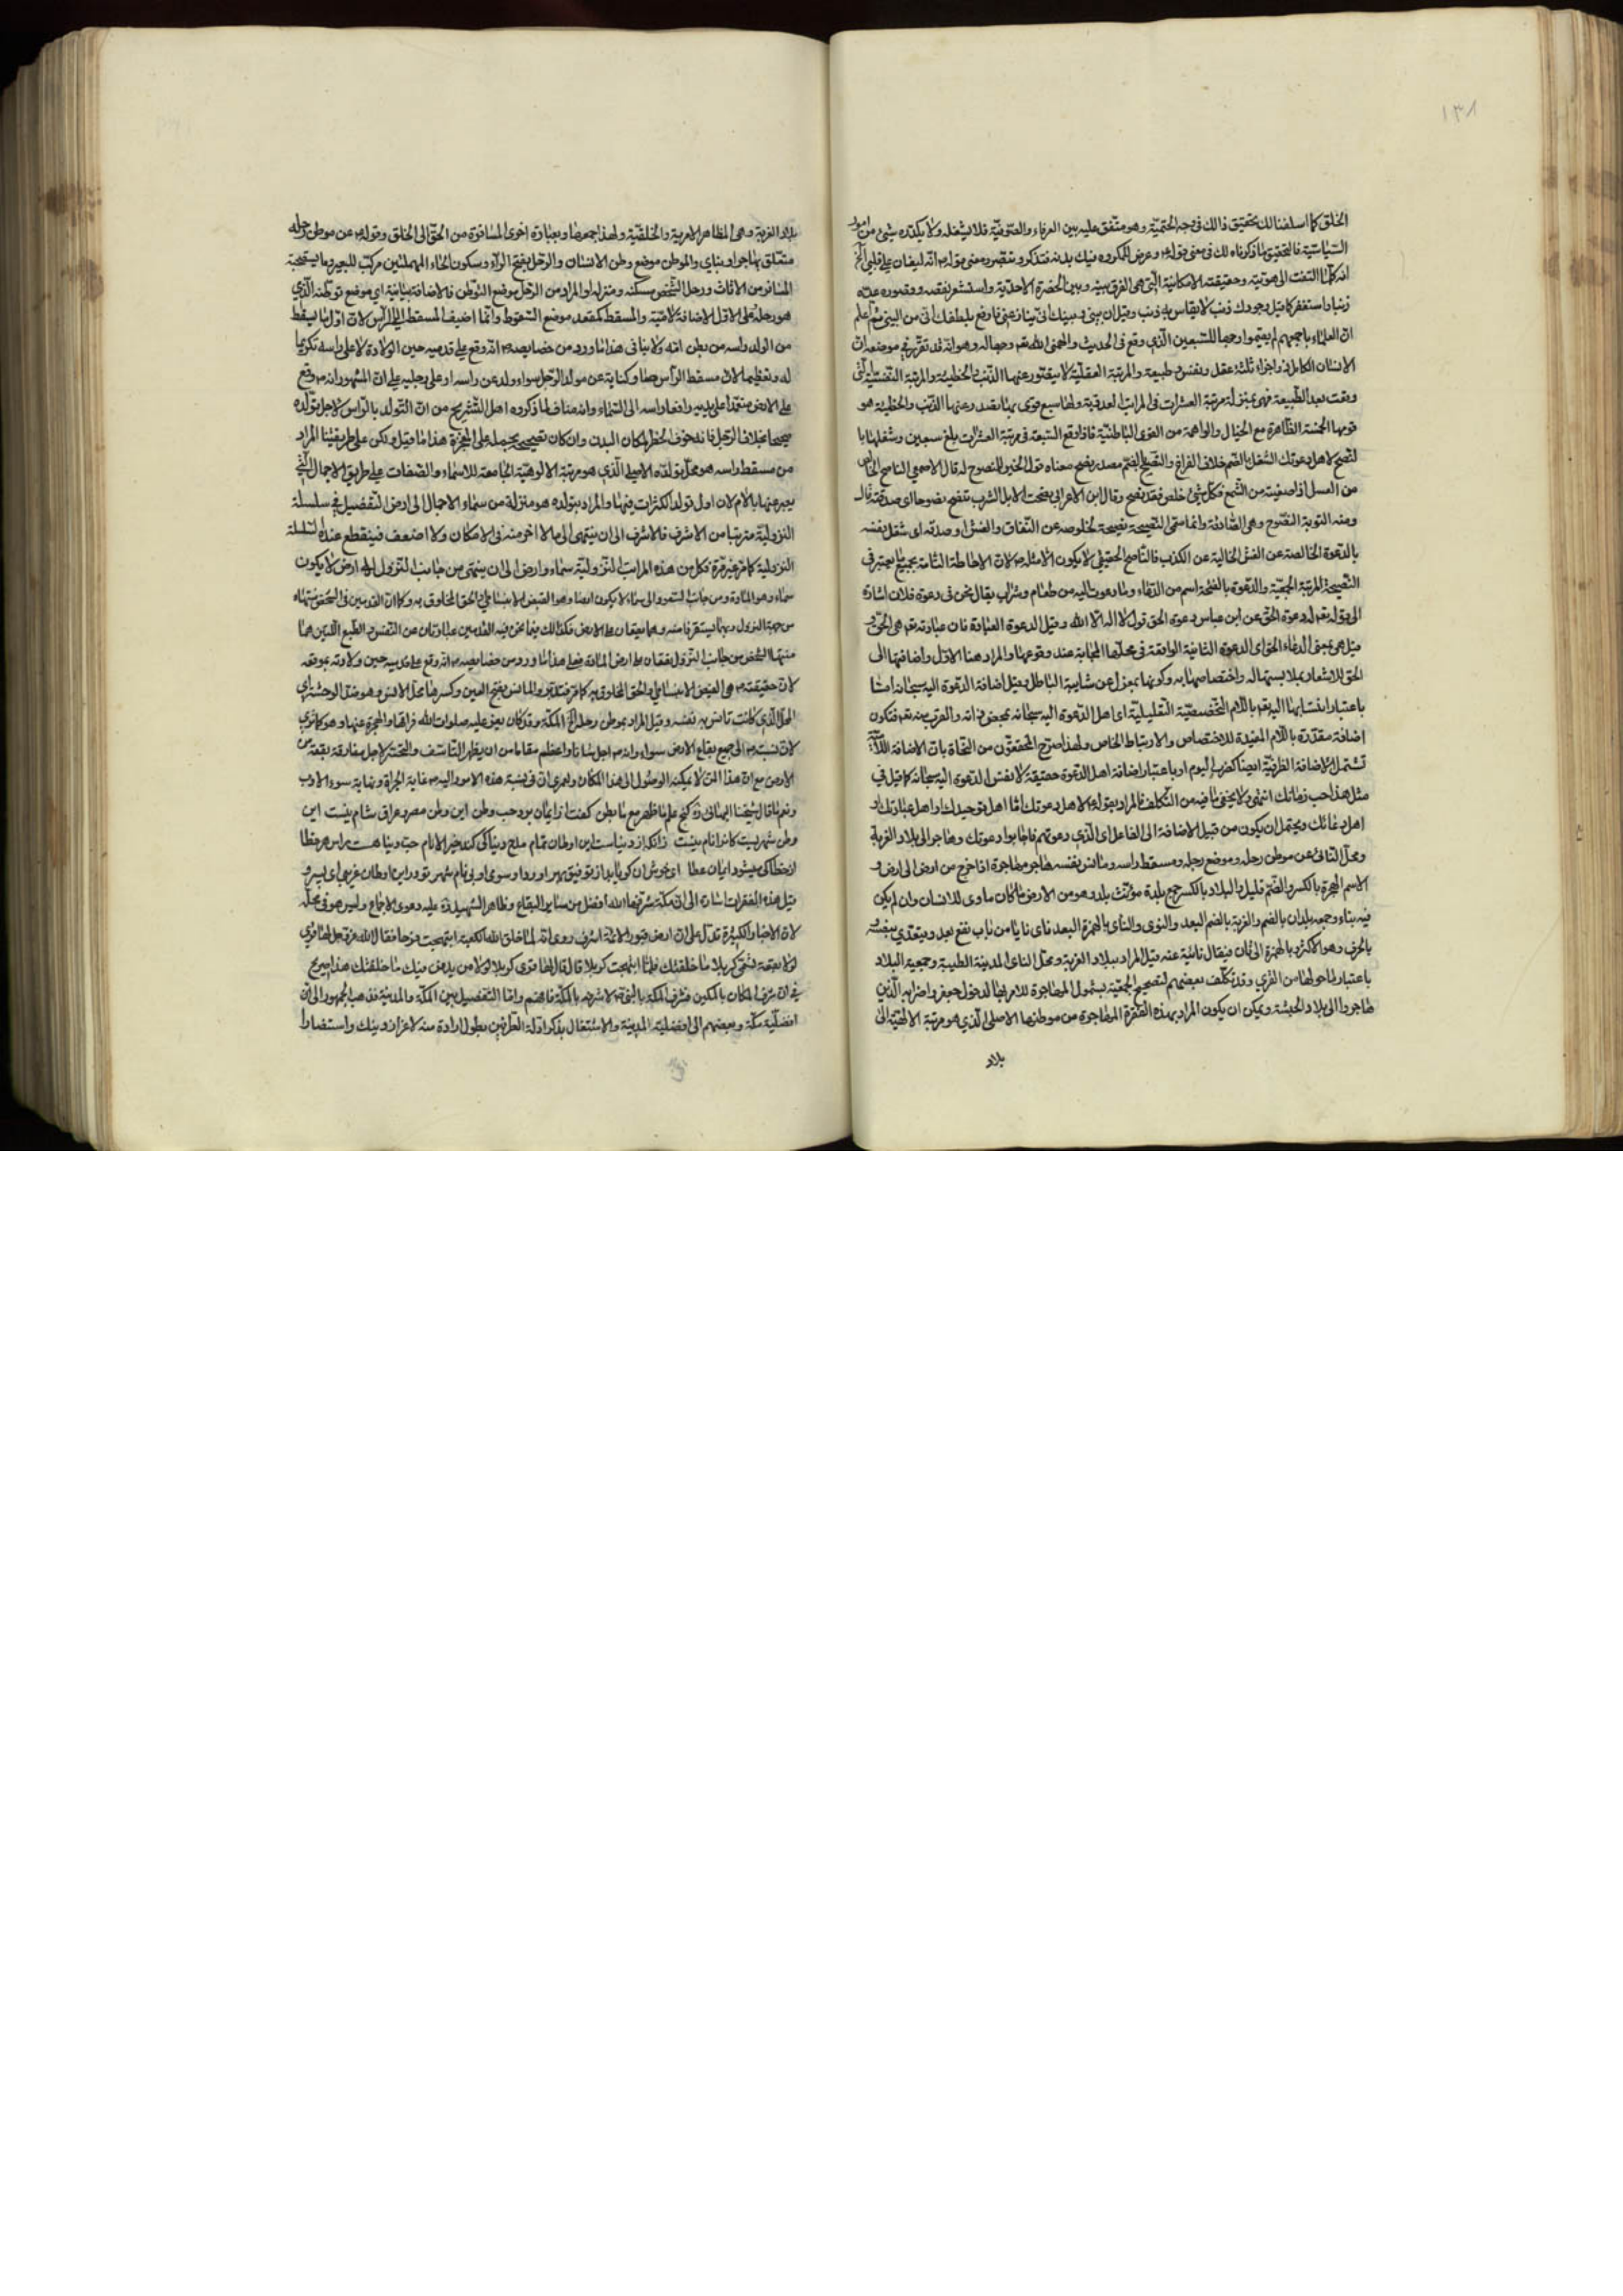 ١٣٨
الخلق كما اسلفنا لك تحقيق ذالك فى وجه الختميّة وهو متّفق عليه بين العرفاء والصّوفيّة فلا يشغله ولا يكدّره شيئ من امور
السّياسيّة فالتحقيق ما ذكرناه لك فى معنى قوله وعرض للمكروه فيك بدنه فتذكر وتبصّر ومعنى قوله انّه ليغان على قلبى الخ
انه كلّما التفت الى هويّته وحقيقته الامكانيّة الّتى هى الفرق بينه وبين الحضرة الاحديّة واستشعر نقصه وقصوره عدّه
ذنبا واستغفر كما قيل وجودك ذنب لا يقاس به ذنب وقيل ان بينى وبينك انّى ينازعنى فارفع بلطفك انّى من البين ثم اعلم
انّ العلماء باجمعهم لم يقيموا وجها للسّبعين الّذى وقع فى الحديث والهمنى الله تعم وجها له وهو انه قد تقرّر فى موضعه انّ
الانسان الكامل اجزاء ثلثة عقل ونفس وطبيعة والمرتبة العقليّة لا يتصوّر عنها الذّنب والخطيئة والمرتبة النّفسيّة الّتى
وقعت بعد الطّبيعة فهى بمنزلة مرتبة العشرات فى المراتب العدديّة ولها سبع قوى بها تقصد وعنها الذّنب والخطيئة هو
قويها الخمسة الظّاهرة مع الخيال والواهمة من القوى الباطنيّة فاذا وقع السّبعة فى مرتبة العشرات بلغ سبعين وشغلها با
لنّصح لاهل دعوتك الشّغل بالضّم خلاف الفراغ والنّصح بالضّم مصدر نصح معناه قول الخير للمنصوح له قال الاصمعى الناصح الخالص
من العسل اذا صفيته من الشّمع فكلّ شئ خلص فقد نصح وقال ابن الاعرابى نصحت الابل الشرب تنصح نصوحا اى صدقته قال
ومنه التوبة النّصوح وهى الصّادقة وانّما سمّى النّصيحة نصيحة لخلوصه عن النّفاق والغشّ وصدقه اى شغل نفسه
بالدعوة الخالصة عن الغشّ الخالية عن الكذب فالنّاصح الحقيقى لا يكون الاّ مثله لانّ الاحاطة التّامة بجميع ما يعتبر فى
النّصيحة المرتبة الجمعيّة والدّعوة بالفتحة اسم من الدّعاء وما دعوت اليه من طعام وشراب يقال نحن فى دعوة فلان اشارة
الى قوله تعم له دعوة الحقّ عن ابن عباس دعوة الحق قول لا اله الاّ الله وقيل الدعوة العبادة فان عبادته تعم هى الحقّ و
قيل هى بمعنى الدعاء الحق اى الدعوة الثابتة الواقعة فى محلّها المجابة عند وقوعها والمراد هنا الاوّل واضافتها الى
الحق للاشعار بملابستها له واختصاصها به وكونها بمعزل عن شايبة الباطل قيل اضافة الدّعوة اليه سبحانه امّا
باعتبار انتسابها اليه تعم باللّام التّخصصيّة التّقليليّة اى اهل الدّعوة اليه سبحانه بمحض ذاته والقرب منه تعم فتكون
اضافة مقدّرة باللّام المفيدة للاختصاص والارتباط الخاص ولهذا صرّح المحقّقون من النّحاة بانّ الاضافة اللّاميّة
تشتمل الاضافة الظرفيّة ايضا كضرب اليوم او باعتبار اضافة اهل الدّعوة حقيقة لا نفس الدعوة اليه سبحانه كما قيل فى
مثل هذا حب رمّانك انتهى ولا يخفى ما فيه من التّكلّف فالمراد بقوله لاهل دعوتك امّا اهل توحيدك او اهل عبادتك او
اهل دعائك ويحتمل ان يكون من قبيل الاضافة الى الفاعل اى الّذى دعوتهم فاجابوا دعوتك وهاجر الى بلاد الغربة
ومحلّ النّائى عن موطن رحله وموضع رجله ومسقط راسه ومانس نفسه هاجر مهاجرة اذا خرج من ارض الى ارض و
الاسم الهجرة بالكسر والضّم قليل والبلاد بالكسر جمع بلدة مؤنّث بلد وهو من الارض ما كان ماوى للانسان وان لم يكن
فيه بناء وجمعه بلدان بالضم والغربة بالضم البعد والنوى والنأى بالهمزة البعد نأى نأيا من باب نفع بعد ويتعدّى بنفسه
بالحرف وهو الاكثر وبالهمزة الى ثان فيقال نائيته عنه قيل المراد ببلاد الغربة ومحلّ الناى المدينة الطيبة وجمعيّة البلاد
باعتبار ما حولها من القرى وقد تكلّف بعضهم لتصحيح الجمعيّة بشمول المهاجرة للامر بها لدخول جعفر واضرابه الّذين
هاجروا الى بلاد الحبشة ويمكن ان يكون المراد بهذه الفقرة المهاجرة من موطنها الاصلى الّذى هو مرتبة الالهيّة الى
بلاد
بلاد الغربة وهى المظاهر الامريّة والخلقيّة ولهذا جمعها وبعبارة اخرى المسافرة من الحقّ الى الخلق وقوله عن موطن رحله
متعلّق بهاجر او بناى والموطن موضع وطن الانسان والرحل بفتح الرّاء وسكون الحاء المهملتين مركب للبعير وما يستصحبه
المسافر من الاثاث ورحل الشّخص مسكنه ومنزله او المراد من الرّحل موضع التّوطّن فالاضافة بيانيّة اى موضع توطّنه الّذى
هو رحله وعلى الاوّل الاضافة لاميّة والمسقط كمقعد موضع السّقوط وانّما اضيف المسقط الى الرّاس لانّ اوّل ما يسقط
من الولد راسه من بطن امّه ولا ينافى هذا ما ورد من خصايصه انّه وقع على قدميه حين الولادة لا على راسه تكريما
له وتعظيما لانّ مسقط الرّاس صار كناية عن مولد الرّجل سواء ولد عن راسه او على رجليه على انّ المشهور انه وقع
على الارض معتمدا على يديه رافعا راسه الى السّماء وانه مناف لما ذكروه اهل التّشريح من انّ التّولد بالرّاس لاجل تولّده
صحيحا بخلاف الرّجل فانه خوف الخطر لمكان اليدين وان كان تصحيحه بحمله على المعجزة هذا ما قيل ولكن على طريقتنا المراد
من مسقط راسه هو محلّ تولّده الاصلى الّذى هو مرتبة الالوهيّة الجامعة للاسماء والصّفات على طريق الاجمال الّتى
يعبر عنها بالامّ لان اوّل تولد الكثرات فيها والمراد بتولّده هو منزلة من سماء الاجمال الى ارض التّفصيل فى سلسلة
النزوليّة مترتّبا من الاشرف فالاشرف الى ان ينتهى الى ما لا اخر منه فى الامكان ولا اضعف فينقطع عنده السّلسلة
النزوليّة كما مرّ غير مرّة فكلّ من هذه المراتب النّزوليّة سماء وارض الى ان ينتهى من جانب النّزول الى ارض لا يكون
سماء وهو المادة ومن جانب الصّعود الى سماء لا يكون ارضا وهو الفيض الانبساطى والحق المخلوق به وكما انّ القدمين فى الشّخص منتهاه
من جهة النزول وبهما يستقر قامته وهما يقعان على الارض فكذالك فيما نحن فيه القدمين عبارتان عن النّفس والطّبع اللّذين هما
منتهيا الشّخص من جانب النّزول يقعان على ارض المادة فعلى هذا ما ورد من خصايصه انّه وقع على قدميه حين ولادته بموقعه
لانّ حقيقته هى الفيض الانبساطى والحق المخلوق به كما مرّ فتدبّر والمانس بفتح العين وكسرها محلّ الانس وهو ضدّ الوحشة اى
المحلّ الّذى كانت تانس به نفسه وقيل المراد بموطن رحله الخ المكّة وقد كان يعزّ عليه صلوات الله فراقها والهجرة عنها وهو كما ترى
لانّ نسبته الى جميع بقاع الارض سواء وانه اجلّ شانا واعظم مقاما من ان يظهر التّاسّف والتّحسّر لاجل مفارقة بقعة من
الارض مع انّ هذا المتن لا يمكنه الوصول الى هذا المكان ولعمرى انّ فى نسبة هذه الامور اليه غاية الجرأة ونهاية سوء الادب
ونعم ما قال شيخنا البهائى گنج علم ما ظهر مع ما بطن گفت از ايمان بود حب وطن اين وطن مصر و عراق و شام نيست اين
وطن شهريست كانرا نام نيست زانكه از دنياست اين اوطان تمام مدح دنيا كى كند خير الانام حب دنيا هست راس هر خطا
از خطا كى ميشود ايمان عطا اى خوش آن كو يابد از توفيق بهر اورد رو سوى او بى نام شهر تو در اين اوطان غريبى اى پسر و
قيل هذه الفقرات اشارة الى انّ مكّة شرّفها الله افضل من ساير البقاع وظاهر الشّهيد ره عليه دعوى الاجماع وليس هو فى محلّه
لانّ الاخبار الكثيرة تدلّ على انّ ارض قبور الائمّة اشرف روى انّه لمّا خلق الله الكعبة ابتهجت فرحا فقال الله عزّ وجلّ لها قرّى
لولا بقعة تسمّى كربلا ما خلقتك فلمّا ابتهجت كربلا قال قال لها قرّى كربلا لولا من يدفن فيك ما خلقتك هذا صريح
فى انّ شرف المكان بالمكين فشرف المكّة بالنّبوّة لا شرفه بالمكّة فافهم وامّا التّفضيل بين المكّة والمدينة فذهب الجمهور الى انّ
افضليّة مكّة وبعضهم الى افضليّة المدينة والاشتغال بذكر ادلّة الطّرفين يطول ارادة منه لاعزاز دينك واستنصارا